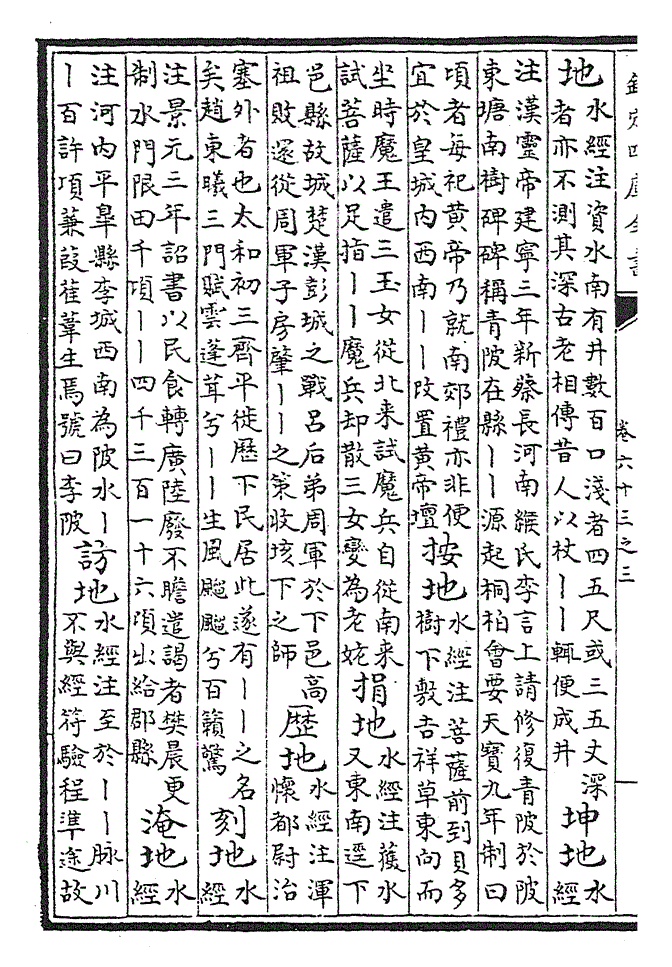 欽定四庫全書
卷六十三之三
地水經注資水南有井數百口淺者四五尺或三五丈深
者亦不測其深古老相傳昔人以杖丨丨輒便成井坤地水
經
注漢靈帝建寧三年新蔡長河南緱氏李言上請修復青陂於陂
東塘南樹碑碑稱青陂在縣丨丨源起桐柏會要天寶九年制曰
項者每祀黄帝乃就南郊禮亦非便
宜於皇城内西南丨丨改置黄帝壇按地水經注菩薩前到貝多
樹下敷吉祥草東向而
坐時魔王遣三玉女從北来試魔兵自從南来
試菩薩以足指丨丨魔兵却散三女變為老姥捐地水經注獲水
又東南逕下
邑縣故城楚漢彭城之戰吕后弟周軍於下邑高
祖敗還從周軍子房肇丨丨之策收垓下之師歴地水經注渾
懷都尉治
塞外者也太和初三齊平徙歴下民居此遂有丨丨之名
矣趙東曦三門賦雲蓬茸兮丨丨生風颼颼兮百籟驚刻地水
經
注景元三年詔書以民食轉廣陸廢不贍遣謁者樊晨更
制水門限田千項丨丨四千三百一十六項出給郡縣淹地水
經
注河内平皋縣李城西南為陂水丨
丨百許項蒹葭萑葦生焉號曰李陂訪地水經注至於丨丨脉川
不與經符驗程準途故